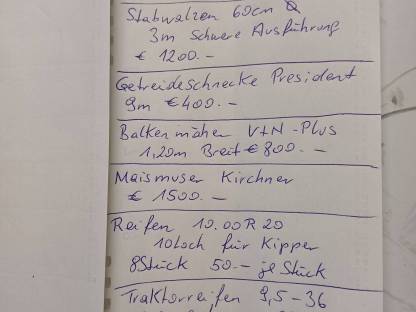 Stabwalzen 60cm Ø
3m Schwere Ausführung
€ 1200.-
Getreideschnecke President
9m € 400.-
Balkenmäher V+N-Plus
1,20m Breit € 800.-
Maismuser Kirchner
€ 1500.-
Reifen 10.00 R 20
10Loch für Kipper
8Stück 50.- je Stück
Traktorreifen 9,5-36